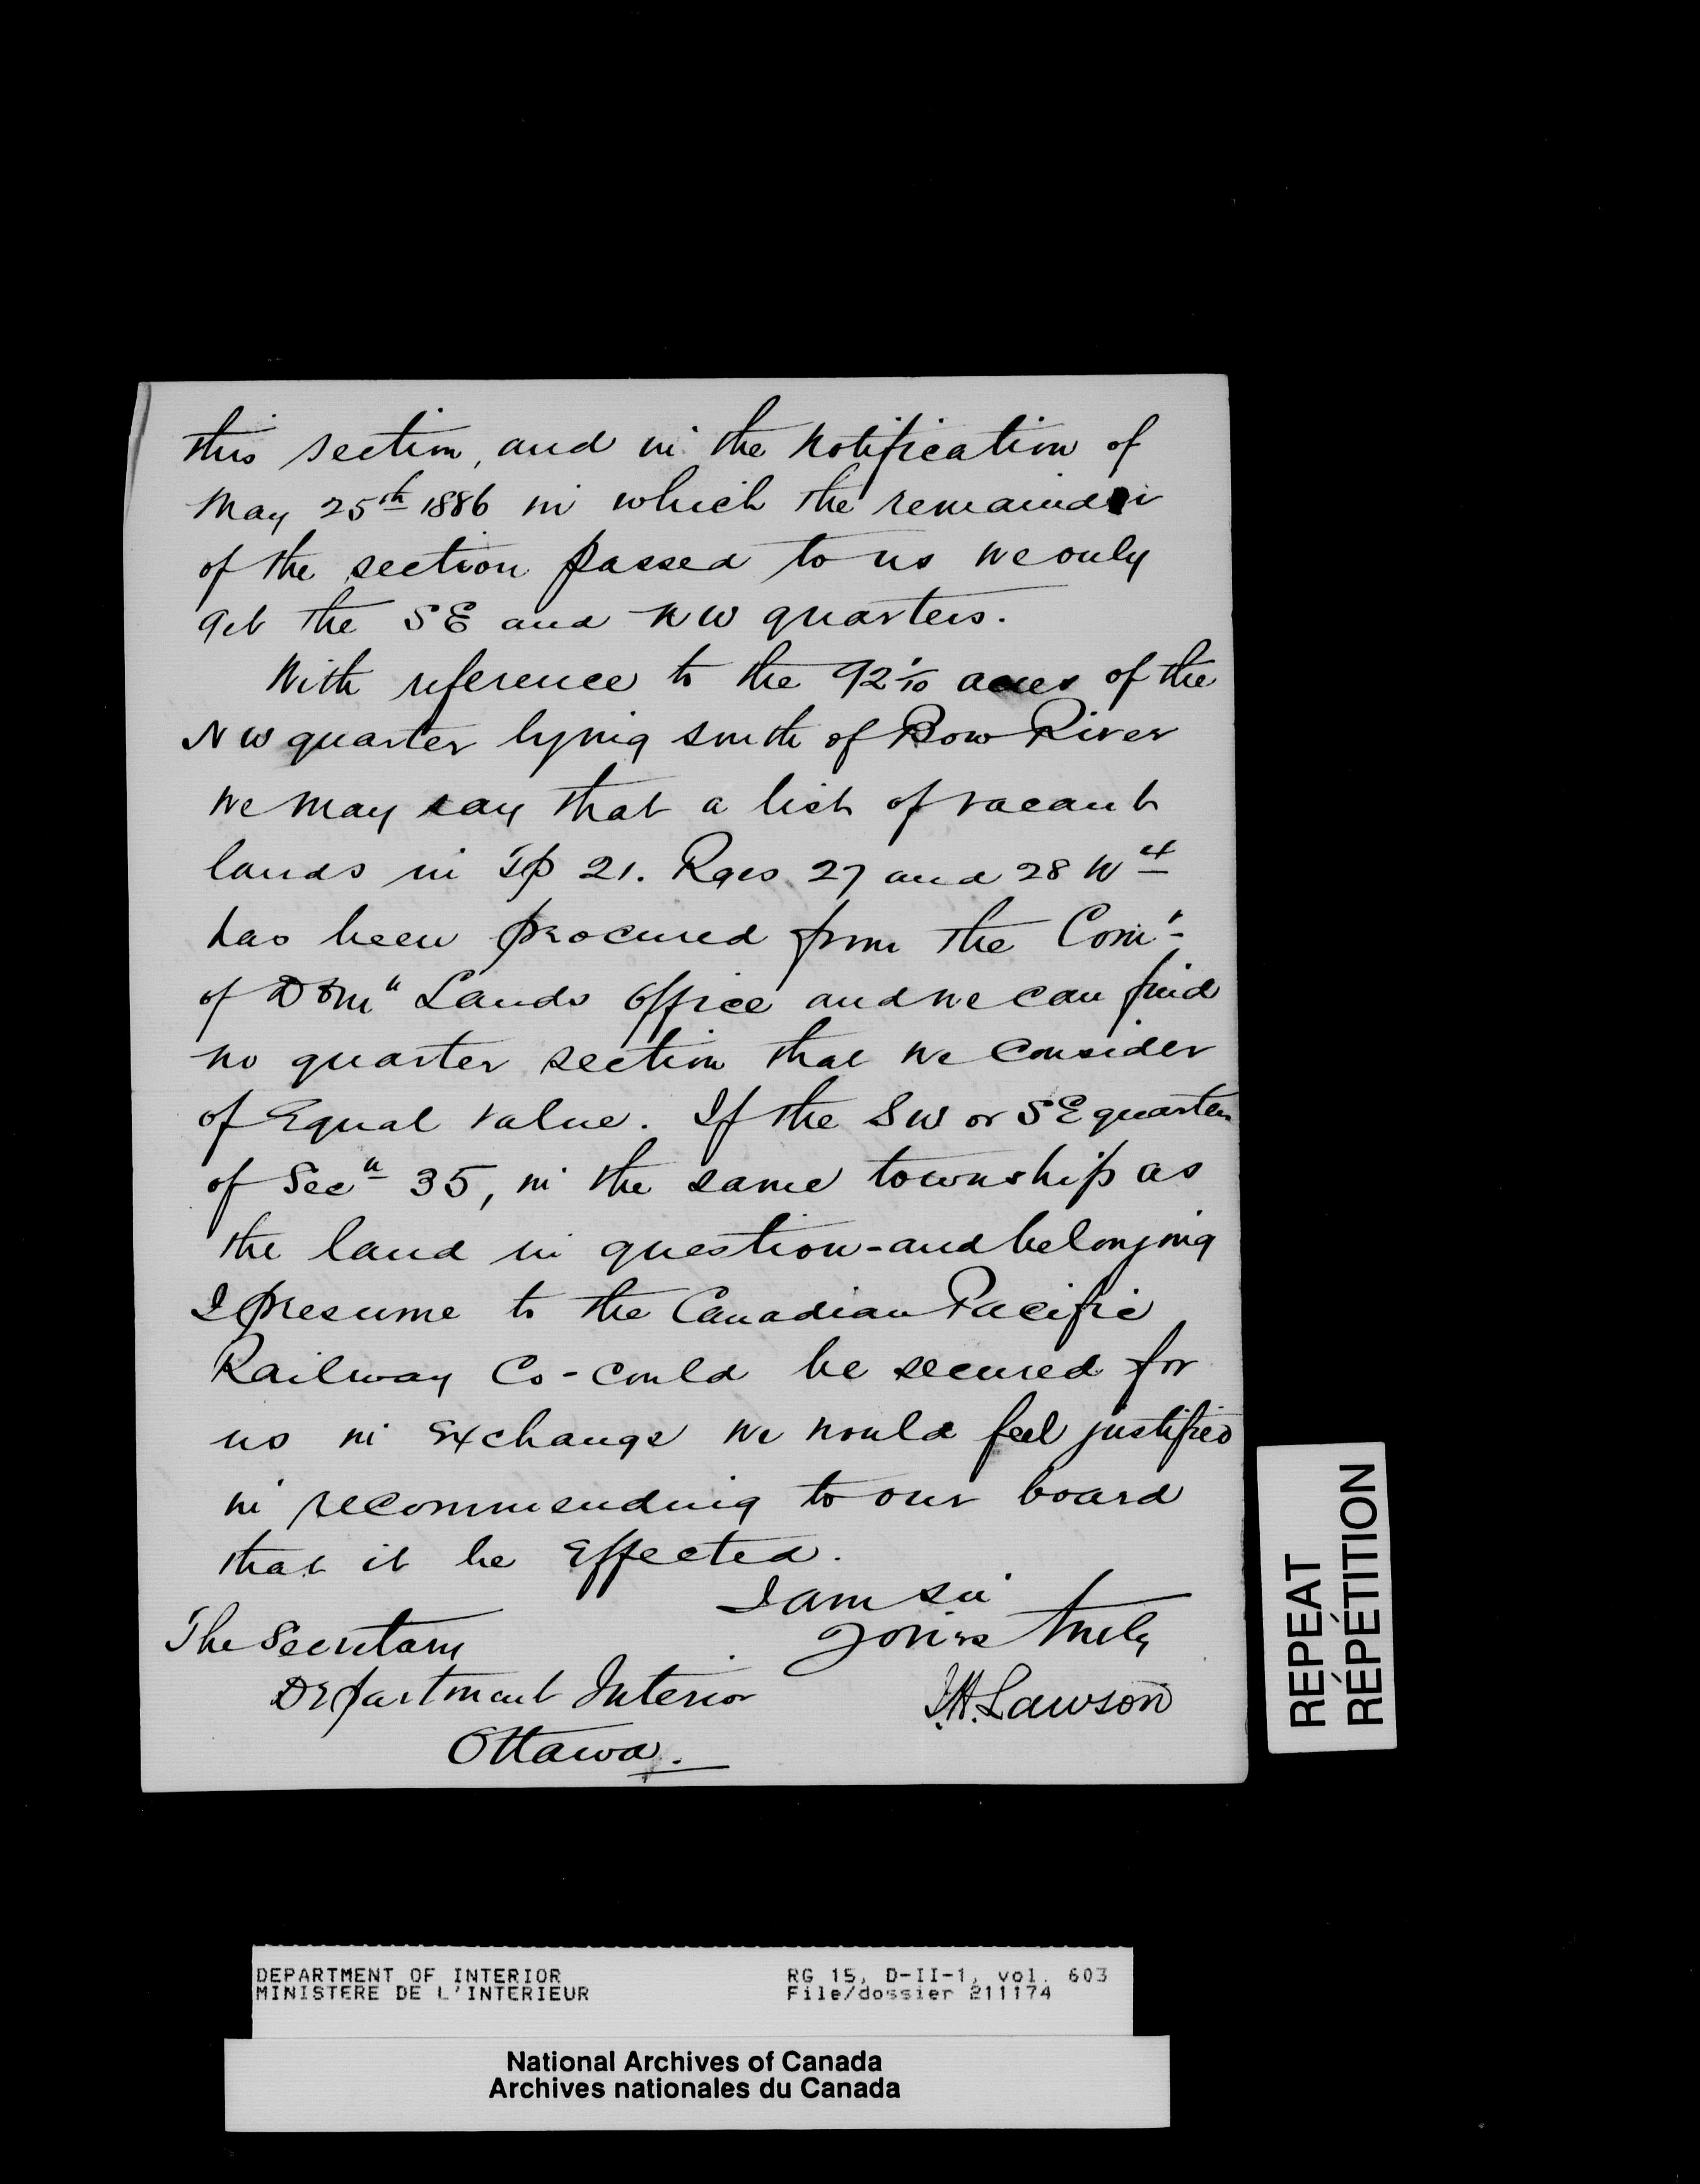 this section, and in the notification of
May 25th 1886 in which the remainder
of the section passed to us we only
get the SE and NW quarters.
With reference to the 92 1/10 acres of the
NW quarter lying south of Bow River
we may say that a list of vacant
lands in Tp 21. Rges 27 and 28 W 4
has been procured from the Comr
of Domn Lands Office and we can find
no quarter section that we consider
of Equal value. If the SW or SE quarter
of Secn 35, in the same township as
the land in question - and belonging
I presume to the Canadian Pacific
Railway Co - could be secured for
us in Exchange we would feel justified
in recommending to our board
that it be Effected.
I am Sir
Yours truly
J.H. Lawson
The Secretary
Department Interior
Ottawa.
REPEAT
RÉPÉTITION
DEPARTMENT OF INTERIOR RG 15, D-II-1, vol. 603
MINISTERE DE L'INTERIEUR File/dossier 211174
National Archives of Canada
Archives nationales du Canada